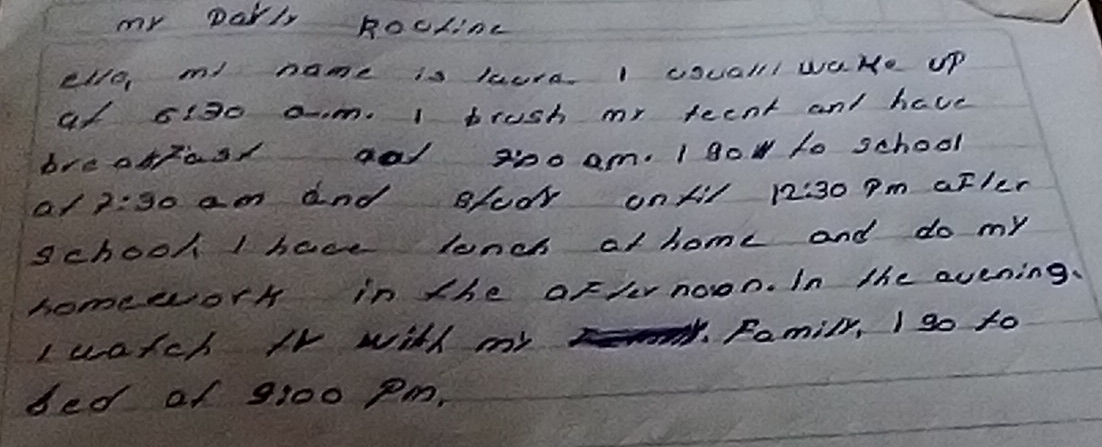 my Daily Routine
ello, my name is laura. I usually wake up
at 6:30 a.m. I brush my teent and have
breakfast aat 7:00 am. I go to school
at 7:30 am and study until 12:30 pm after
school I have lunch at home and do my
homework in the afternoon. In the avening.
I watch tv with my Family, I go to
bed at 9:00 pm.